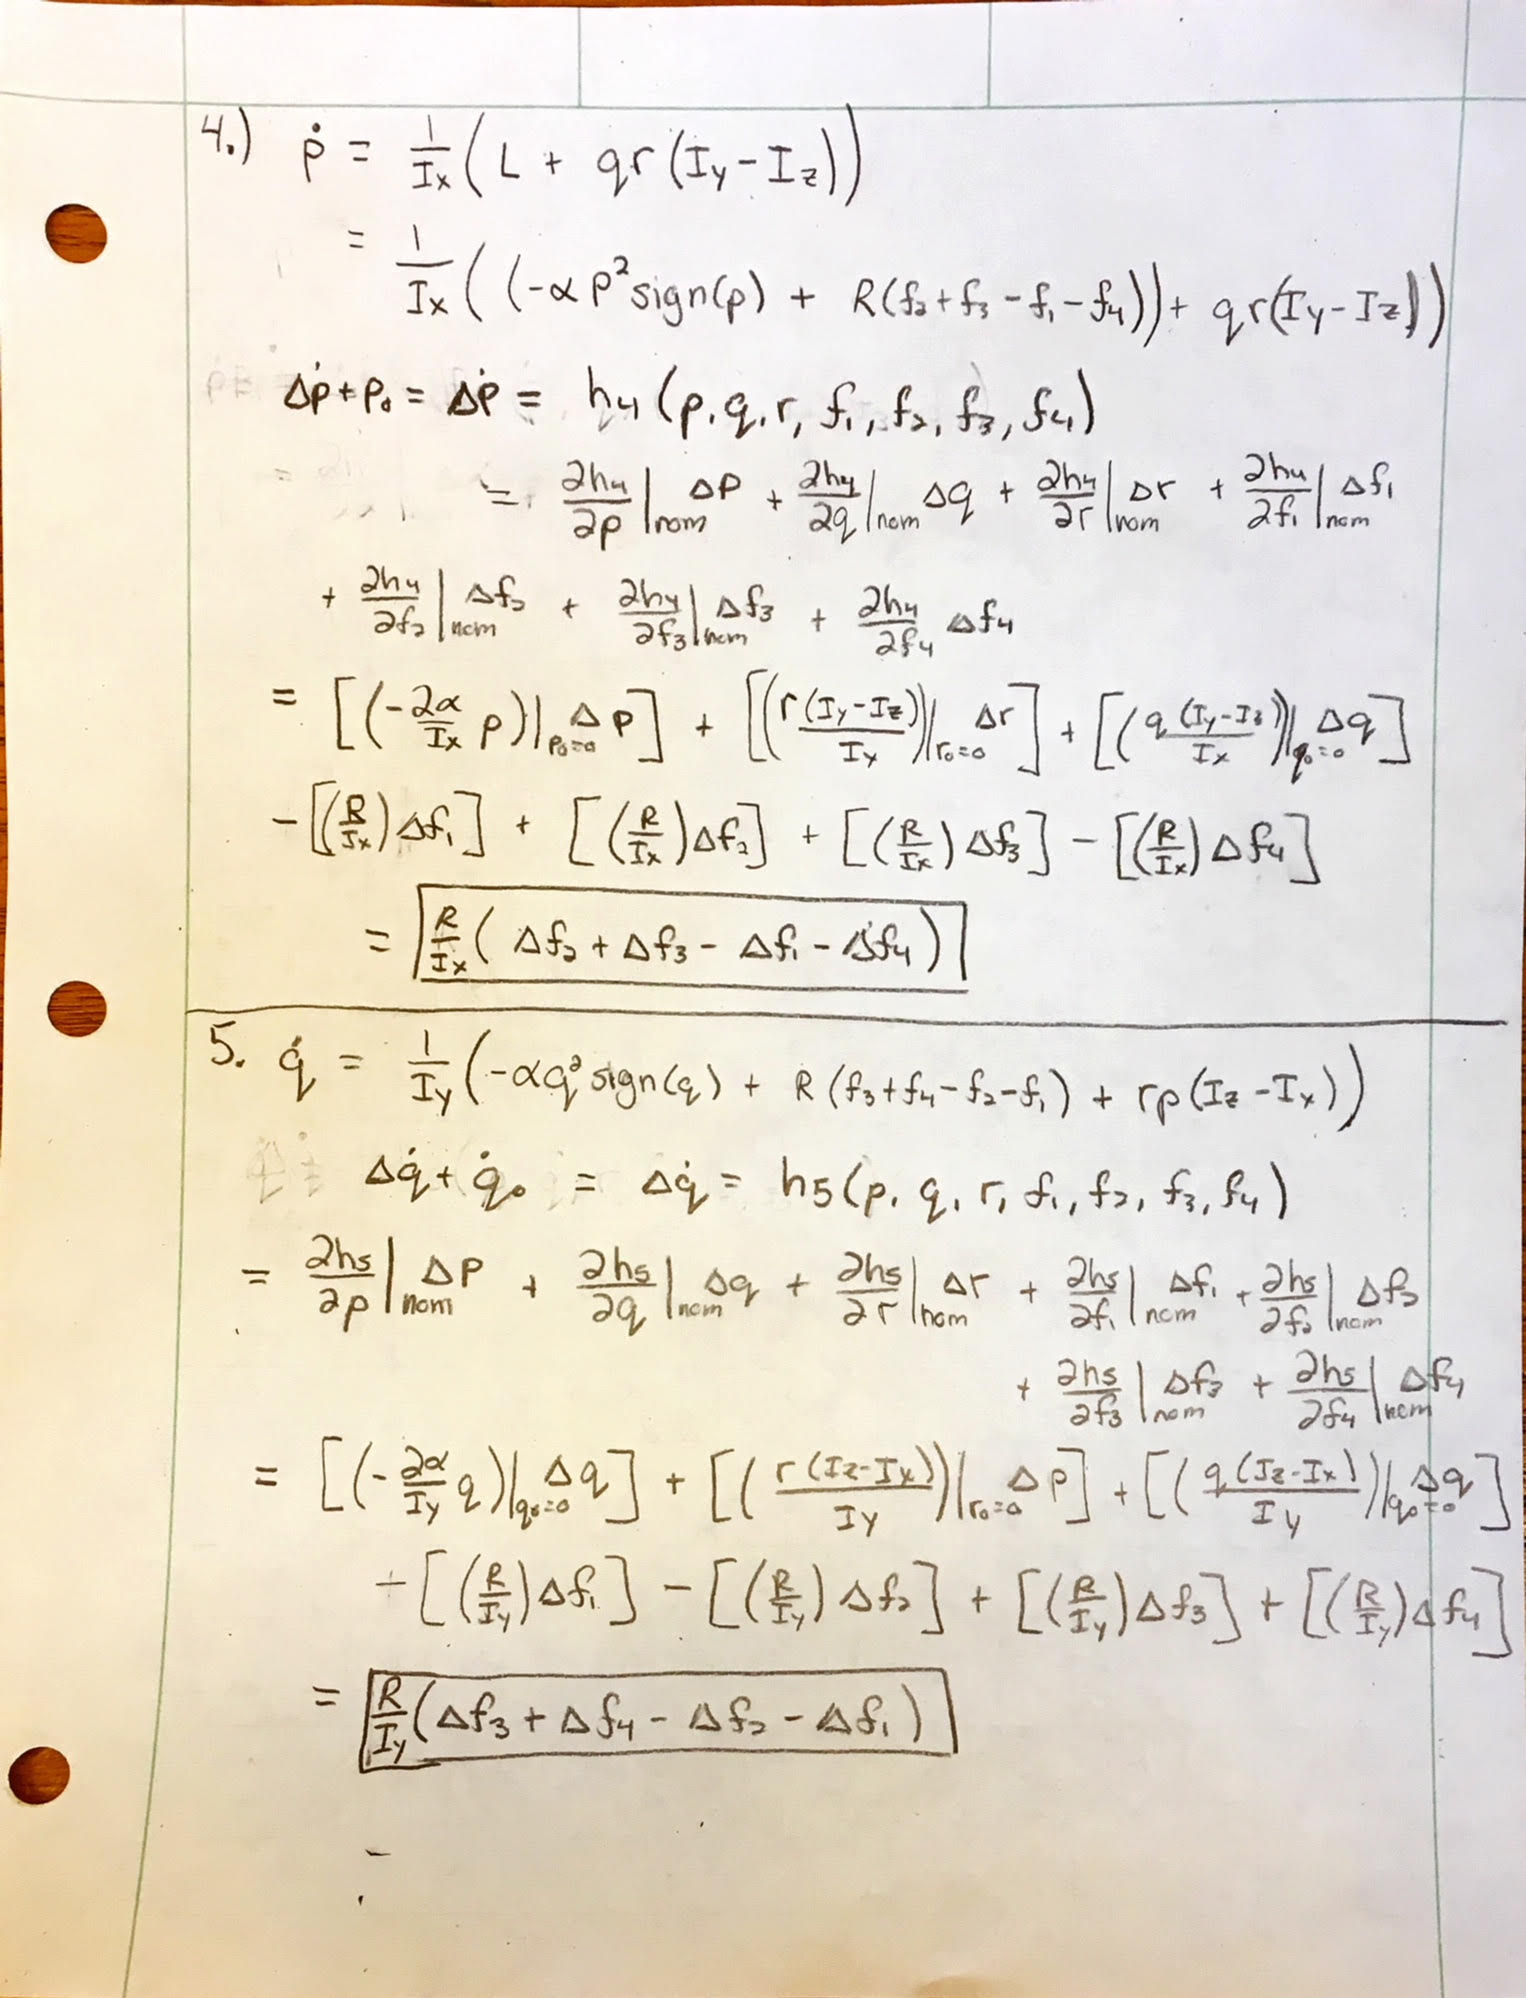 4.) ṗ = 1/Ix ( L + qr (Iy - Iz))
= 1/Ix ( (-α p² sign(p) + R(f2 + f3 - f1 - f4)) + qr(Iy - Iz))
Δṗ + p₀ = Δṗ = h4 (p, q, r, f1, f2, f3, f4)
= ∂h4/∂p |nom Δp + ∂h4/∂q |nom Δq + ∂h4/∂r |nom Δr + ∂h4/∂f1 |nom Δf1
+ ∂h4/∂f2 |nom Δf2 + ∂h4/∂f3 |nom Δf3 + ∂h4/∂f4 Δf4
= [(-2α/Ix p)|p₀=0 Δp] + [(r(Iy-Iz)/Iy)|r₀=0 Δr] + [(q(Iy-Iz)/Ix)|q₀=0 Δq]
- [(R/Ix) Δf1] + [(R/Ix) Δf2] + [(R/Ix) Δf3] - [(R/Ix) Δf4]
= R/Ix ( Δf2 + Δf3 - Δf1 - Δf4 )
5. q̇ = 1/Iy (-αq² sign(q) + R (f3 + f4 - f2 - f1) + rp (Iz - Ix))
Δq̇ + q̇₀ = Δq̇ = h5 (p, q, r, f1, f2, f3, f4)
= ∂h5/∂p |nom Δp + ∂h5/∂q |nom Δq + ∂h5/∂r |nom Δr + ∂h5/∂f1 |nom Δf1 + ∂h5/∂f2 |nom Δf2
+ ∂h5/∂f3 |nom Δf3 + ∂h5/∂f4 |nom Δf4
= [(-2α/Iy q)|q₀=0 Δq] + [(r(Iz-Ix)/Iy)|r₀=0 Δp] + [(q(Iz-Ix)/Iy)|q₀=0 Δq]
- [(R/Iy) Δf1] - [(R/Iy) Δf2] + [(R/Iy) Δf3] + [(R/Iy) Δf4]
= R/Iy (Δf3 + Δf4 - Δf2 - Δf1)